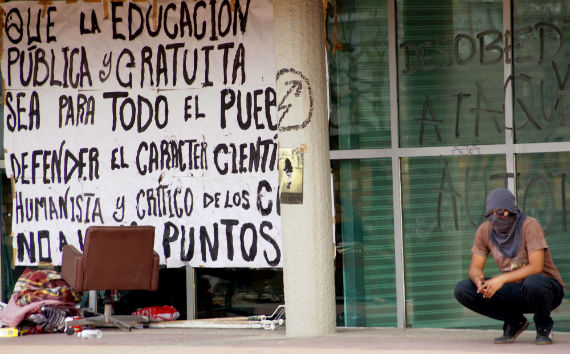 QUE LA EDUCACION
PÚBLICA y GRATUITA
SEA PARA TODO EL PUEB
DEFENDER EL CARACTER CIENTÍ
HUMANISTA y CRÍTICO DE LOS
NO PUNTOS
DESOBED
ATAQU
AUTO